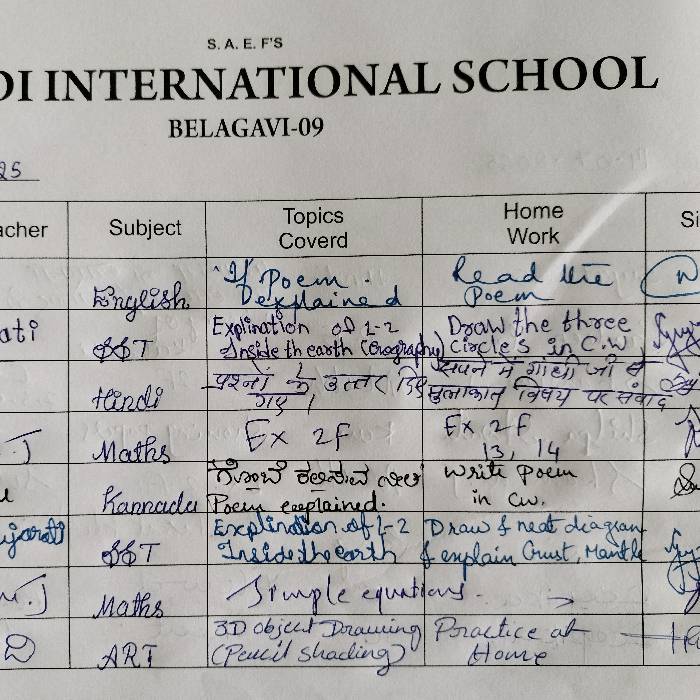 S. A. E. F'S
DI INTERNATIONAL SCHOOL
BELAGAVI-09
25
acher Subject Topics Coverd Home Work Si
English "If Poem. Read the
Dexplained Poem
ati SST Explination of L-2 Draw the three
Inside th earth (Geography) Circle's in C.W
Hindi प्रश्नों के उत्तर दिए सपने में गांधी जी से
गए। मुलाकात विषय पर संवाद
J Maths Ex 2F Ex 2F
13, 14
Kannada Write Poem
Poem explained. in cw.
ujarati SST Explination of L-2 Draw & neat diagram
Inside the earth & explain Crust, Mantle
J Maths Simple equations.
ವಿ ART 3D object Drawing Practice at
(Pencil shading) Home